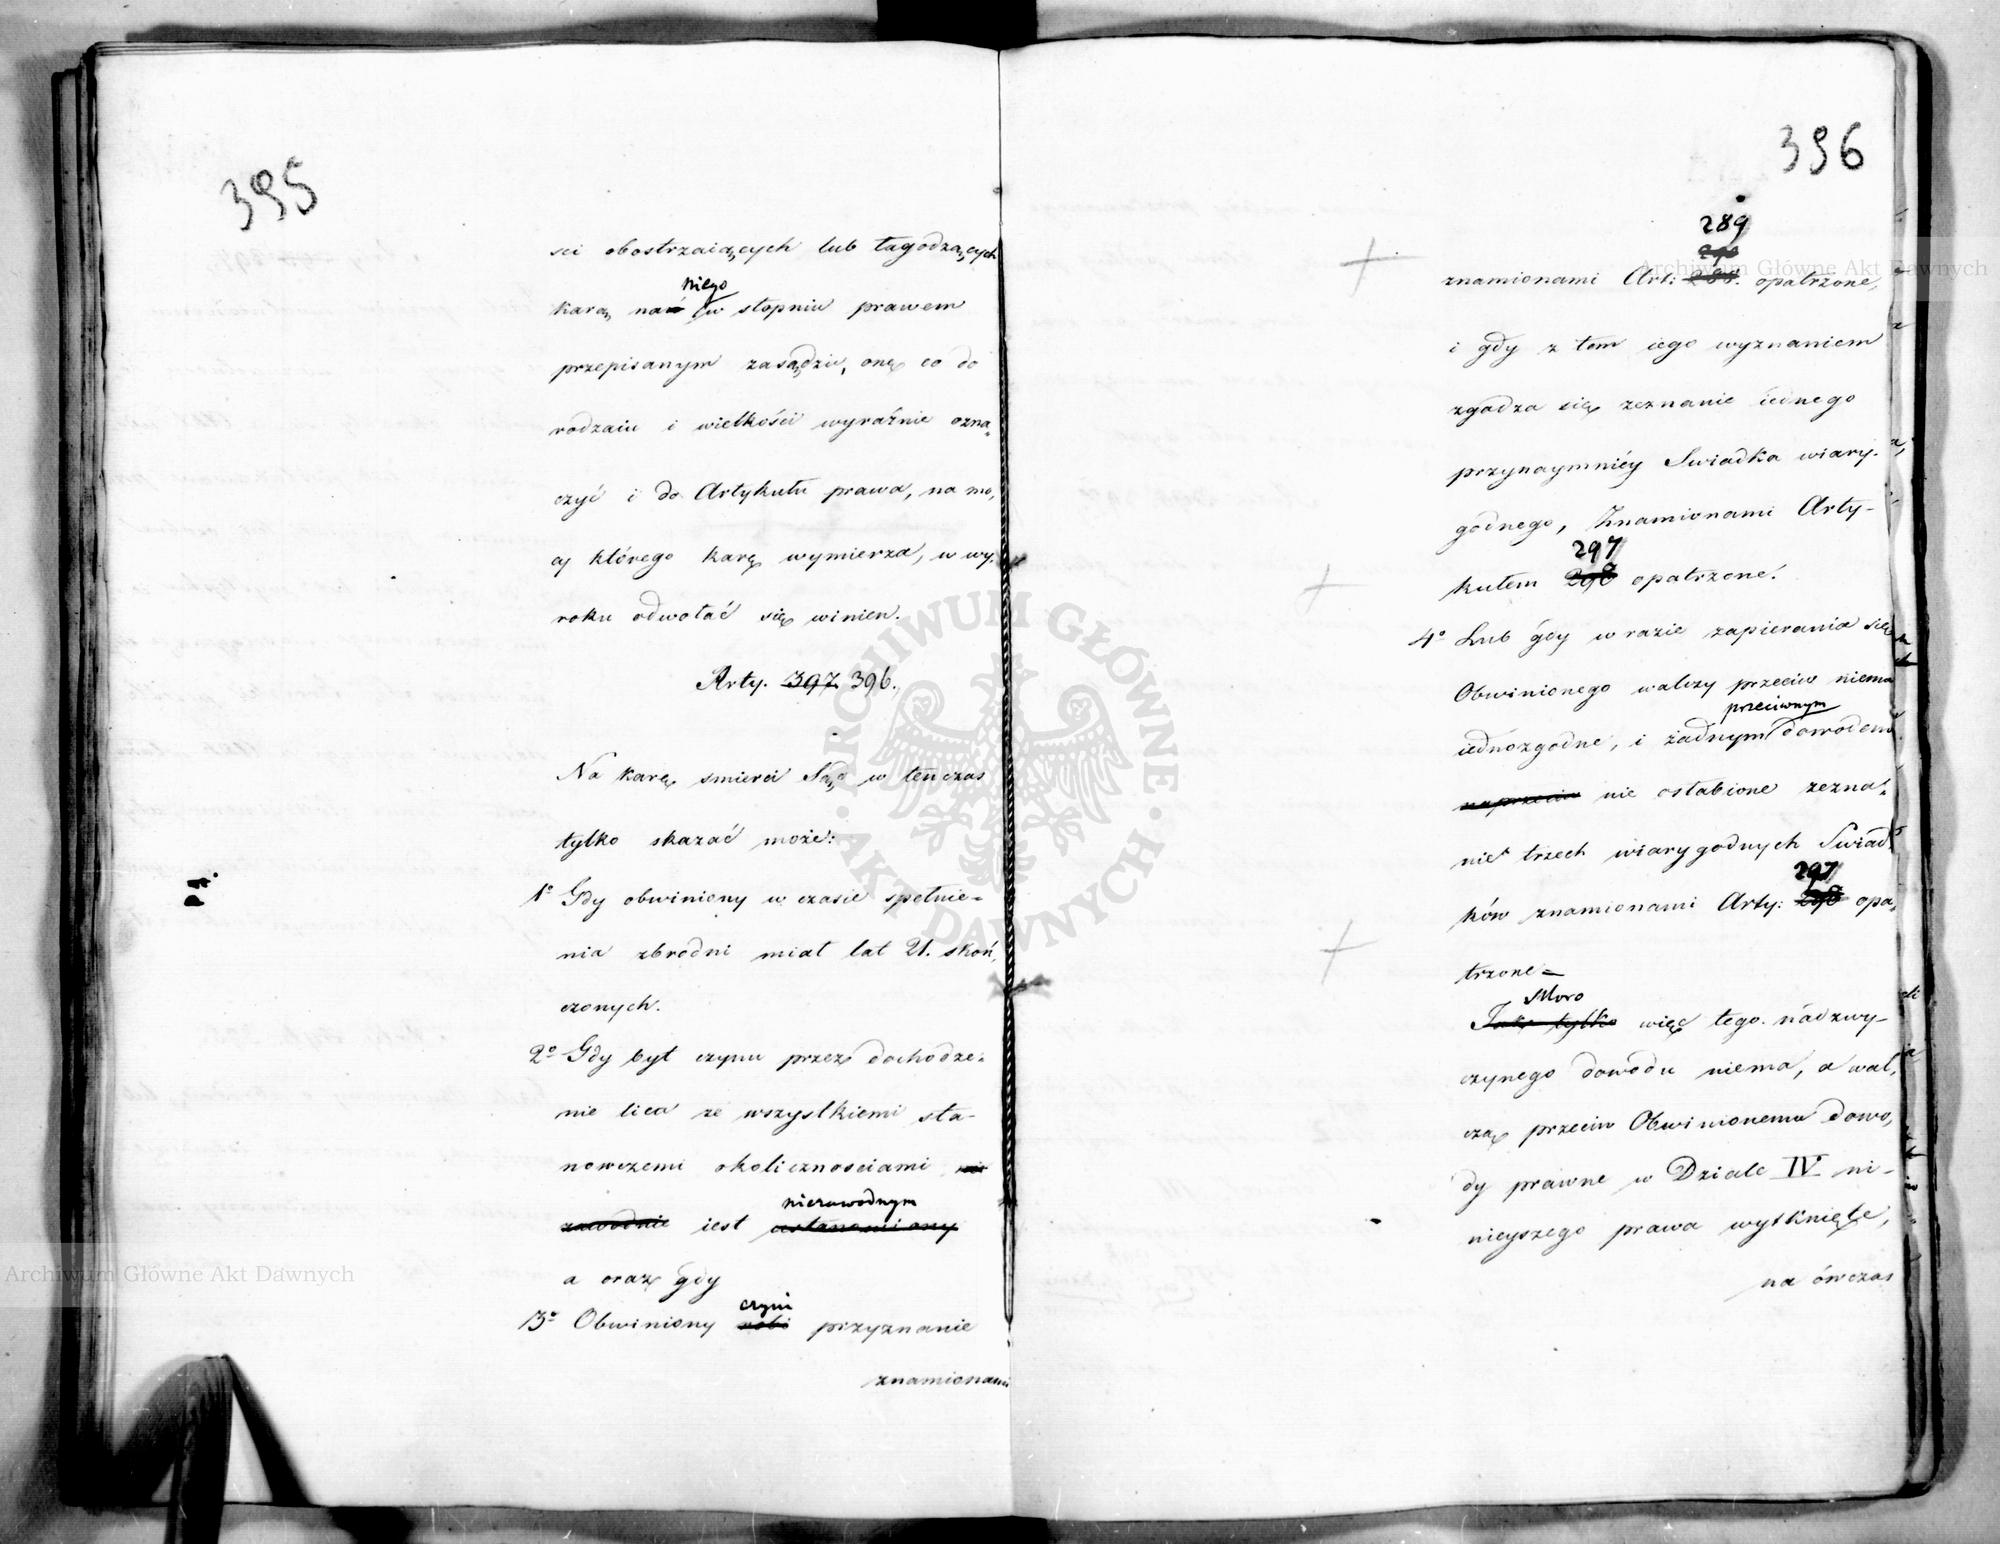 395
ści obostrzaiących lub łagodzących
niego
karę nań w stopniu prawem
przepisanym zasądzić, onę co do
rodzaiu i wielkości wyraźnie ozna„
czyć i do Artykułu prawa, na mo„
cy którego karę wymierza, w wy„
roku odwołać się winien.
Arty. 397. 396.
Na karę smierci Sąd w tenczas
tylko skazać może:
1º Gdy obwiniony w czasie spełnie=
nia zbrodni miał lat 21. skoń„
czonych.
2º Gdy był czynu przez dochodze„
nie lica ze wszystkiemi sta-
nowczemi okolicznosciami nie
niezawodnym
zawodnie iest ustanowiony
a oraz gdy
czyni
3º Obwiniony robi przyznanie
znamionami
P1.
396
289
znamionami Art: opatrzone,
i gdy z tem iego wyznaniem
zgadza się zeznanie iednego
przynaymniéy Swiadka wiary„
godnego, Znamionami Arty-
297
kułem 298 opatrzone.
4º Lub gdy w razie zapierania się
Obwinionego walczy przeciw niemu
przeciwnym
iednozgodne, i żadnym dowodem
naprzeciw nie osłabione zezna„
nie trzech wiarygodnych Swiad„
297
ków znamionami Arty: 298 opa„
trzone =
Skoro
Jak tylko więc tego nadzwy-
czynego dowodu niema, a wal„
czą przeciw Obwinionemu dowo„
dy prawne w Dziale IV ni-
nieyszego prawa wytknięte,
na ówczas
Archiwum Główne Akt Dawnych
Archiwum Główne Akt Dawnych
ARCHIWUM GŁÓWNE · AKT DAWNYCH ·